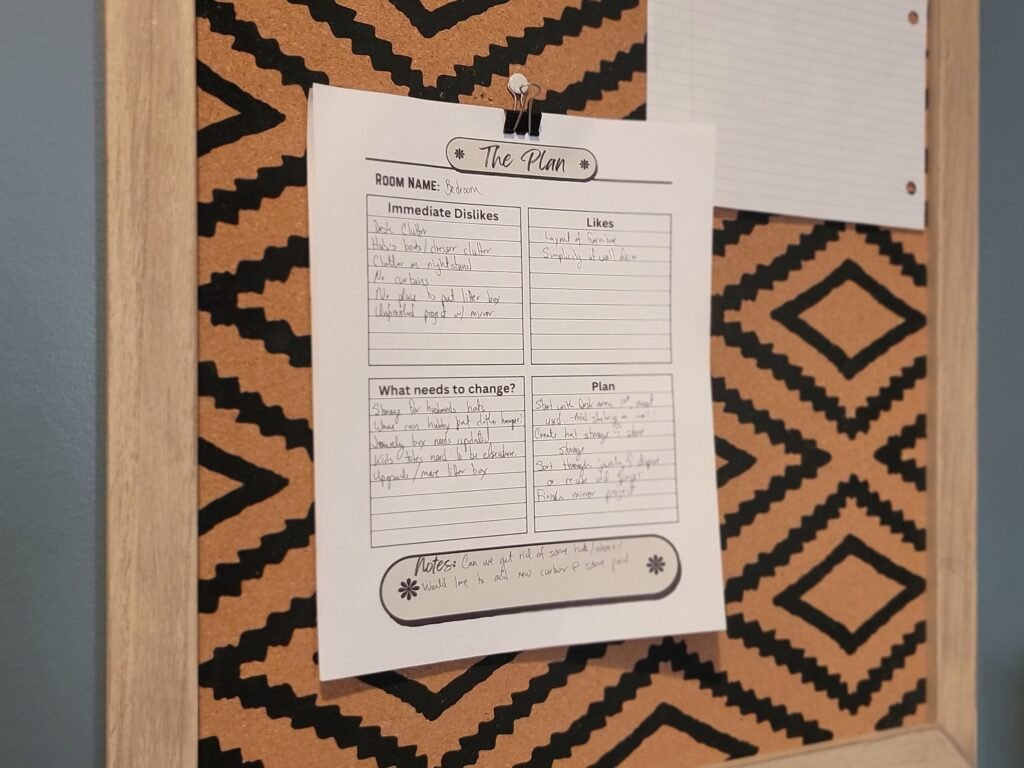 The Plan
ROOM NAME: Bedroom
Immediate Dislikes
Desk Clutter
Hub's boots/dresser clutter
Clutter on nightstand
No curtains
No place to put litter box
Unfinished project w/ mirror
Likes
Layout of furniture
Simplicity of wall decor
What needs to change?
Storage for husbands hats
Where can hubby put clothes hanger?
Jewelry box needs updated
Kids totes need to be elsewhere
Upgrade/move litter box
Plan
Start with desk area
used Add shelving on wall
Create hat storage & shoe
storage
Sort through jewelry &
or re-use old
Finish mirror project
Notes: Can we get rid of some hats/shoes?
Would love to add new curtains & some